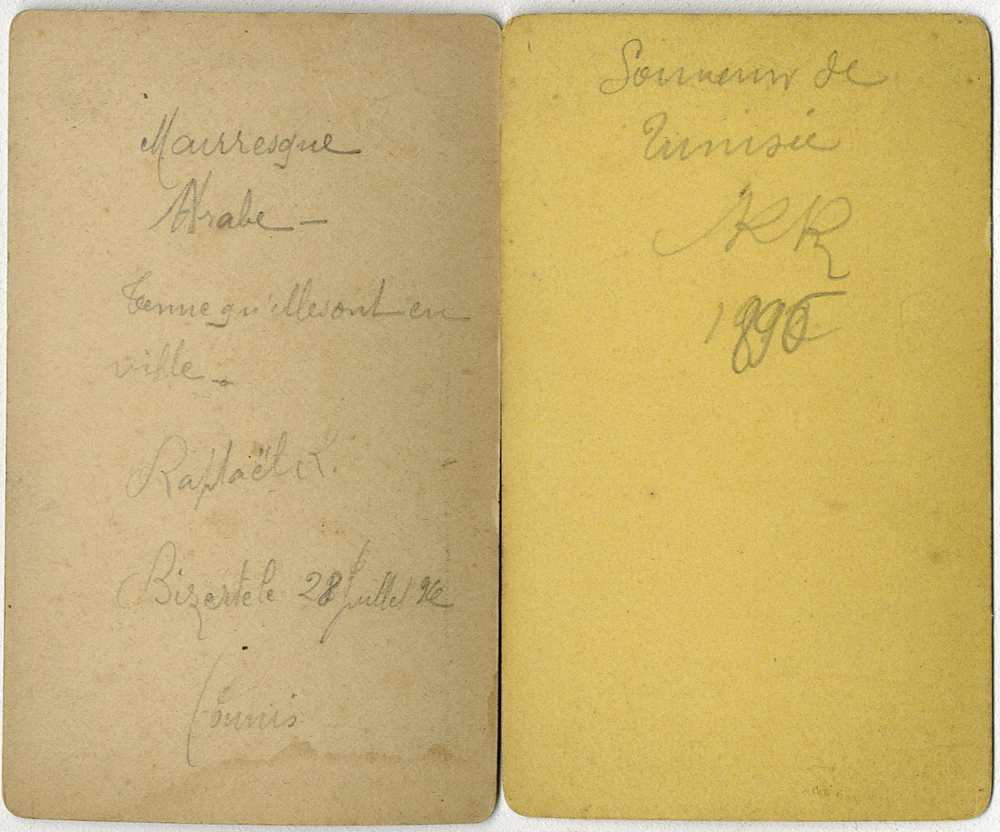 Maurresque
Arabe —
Tenue qu'elles ont en
ville -
Raphaël R.
Bizerte le 28 Juillet 96
(Tunis
Souvenir de
Tunisie
RR